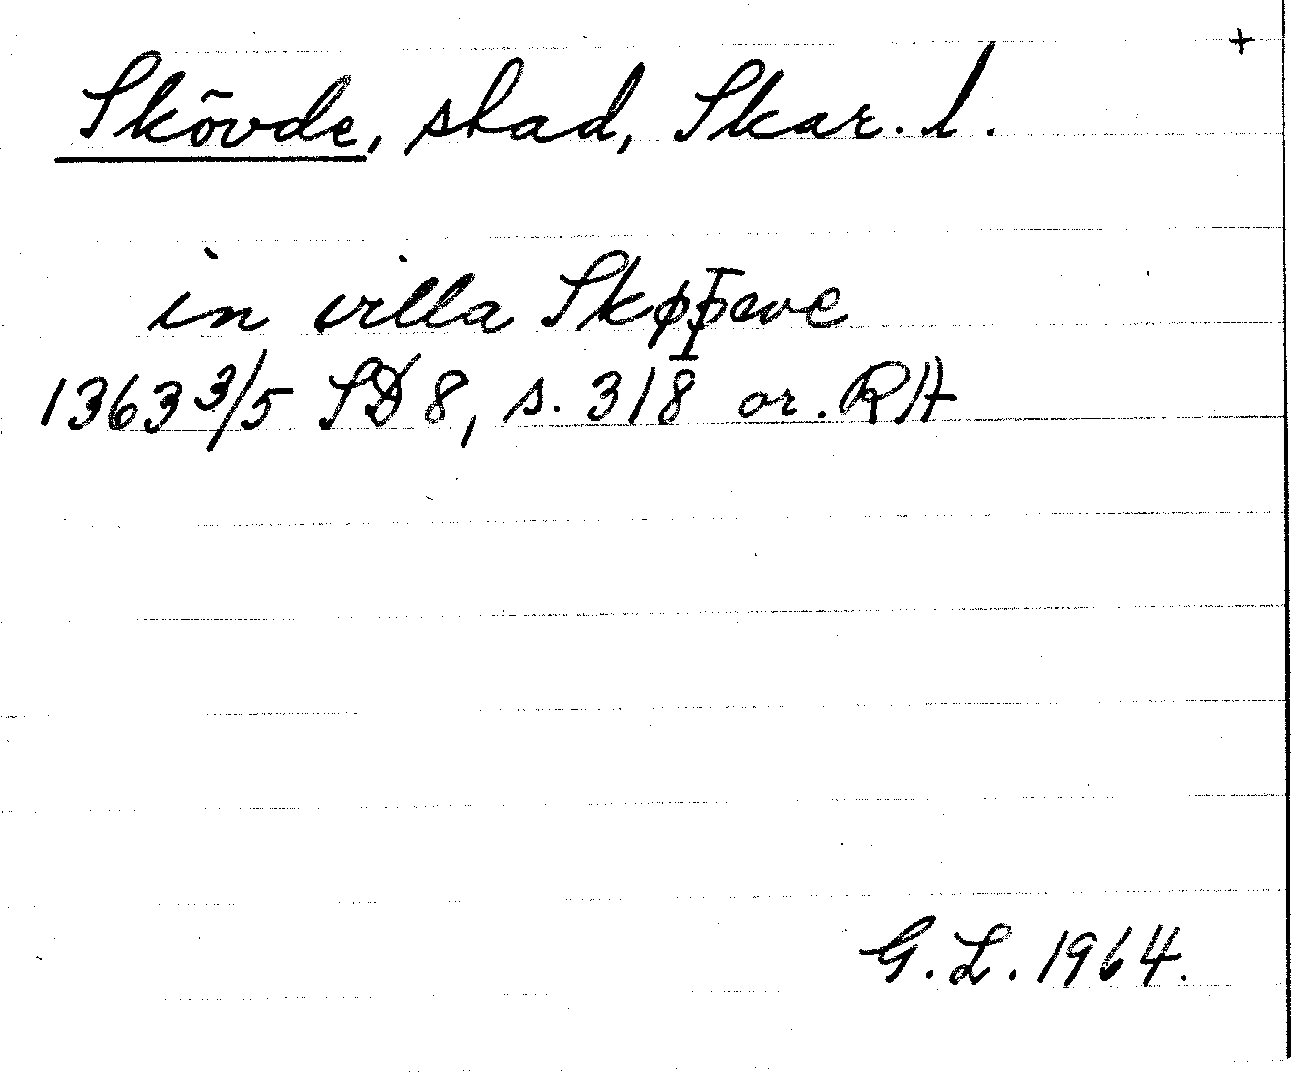 +
Skövde, stad, Skar. l.
in villa Skøþewe
1363 3/5 SD 8, s. 318 or. RA
G. L. 1964.